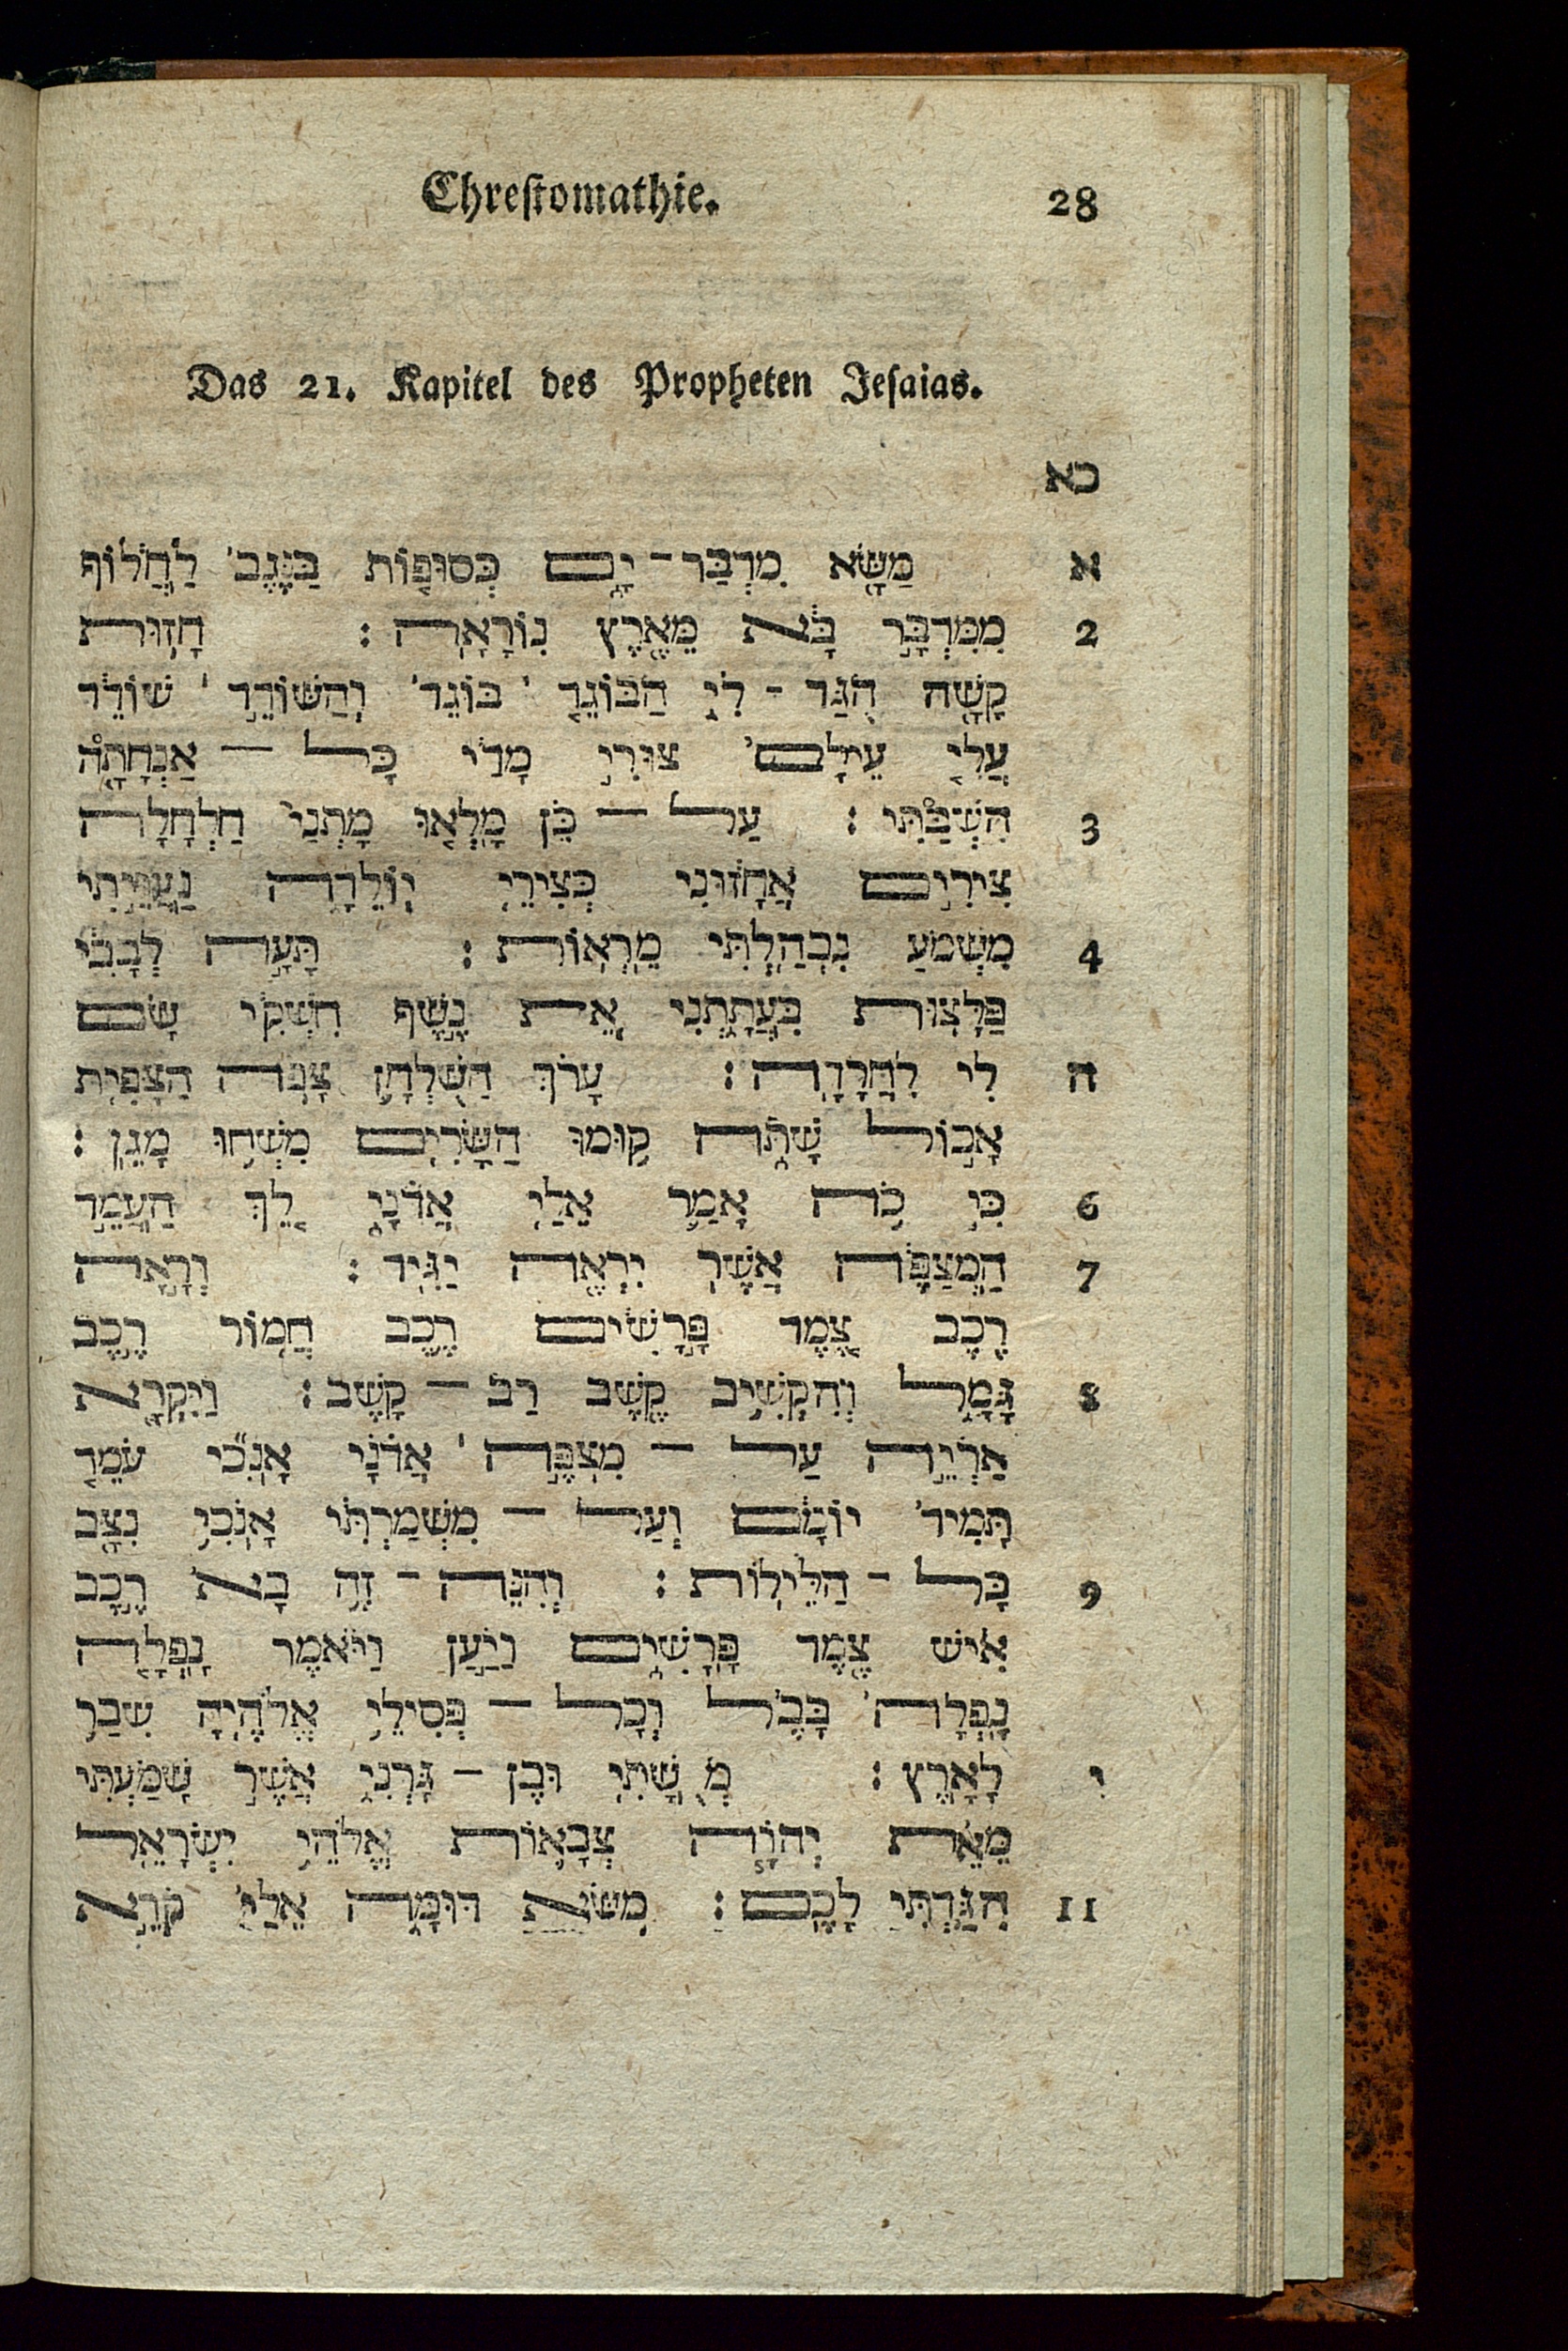 Chreſtomathie. 28
Das 21. Kapitel des Propheten Jeſaias.
כא
א מַשָּׂא מִדְבַּר־יָם כְּסוּפוֹת בַּנֶּגֶב לַחֲלוֹף
2 מִמִּדְבָּר בָּא מֵאֶרֶץ נוֹרָאָה׃ חָזוּת
קָשָׁה הֻגַּד־לִי הַבּוֹגֵד בּוֹגֵד וְהַשּׁוֹדֵד שׁוֹדֵד
עֲלִי עֵילָם צוּרִי מָדַי כָּל־אַנְחָתָהּ
3 הִשְׁבַּתִּי׃ עַל־כֵּן מָלְאוּ מָתְנַי חַלְחָלָה
צִירִים אֲחָזוּנִי כְּצִירֵי יוֹלֵדָה נַעֲוֵיתִי
4 מִשְּׁמֹעַ נִבְהַלְתִּי מֵרְאוֹת׃ תָּעָה לְבָבִי
פַּלָּצוּת בִּעֲתָתְנִי אֵת נֶשֶׁף חִשְׁקִי שָׂם
ה לִי לַחֲרָדָה׃ עָרֹךְ הַשֻּׁלְחָן צָפֹה הַצָּפִית
אָכוֹל שָׁתֹה קוּמוּ הַשָּׂרִים מִשְׁחוּ מָגֵן׃
6 כִּי כֹה אָמַר אֵלַי אֲדֹנָי לֵךְ הַעֲמֵד
7 הַמְצַפֶּה אֲשֶׁר יִרְאֶה יַגִּיד׃ וְרָאָה
רֶכֶב צֶמֶד פָּרָשִׁים רֶכֶב חֲמוֹר רֶכֶב
8 גָּמָל וְהִקְשִׁיב קֶשֶׁב רַב־קָשֶׁב׃ וַיִּקְרָא
אַרְיֵה עַל־מִצְפֶּה אֲדֹנָי אָנֹכִי עֹמֵד
תָּמִיד יוֹמָם וְעַל־מִשְׁמַרְתִּי אָנֹכִי נִצָּב
9 כָּל־הַלֵּילוֹת׃ וְהִנֵּה־זֶה בָא רֶכֶב
אִישׁ צֶמֶד פָּרָשִׁים וַיַּעַן וַיֹּאמֶר נָפְלָה
נָפְלָה בָּבֶל וְכָל־פְּסִילֵי אֱלֹהֶיהָ שִׁבַּר
י לָאָרֶץ׃ מְ שָׁתִי וּבֶן־גָּרְנִי אֲשֶׁר שָׁמַעְתִּי
מֵאֵת יְהוָֹה צְבָאוֹת אֱלֹהֵי יִשְׂרָאֵל
11 הִגַּדְתִּי לָכֶם׃ מַשָּׂא דּוּמָה אֵלַי קֹרֵא